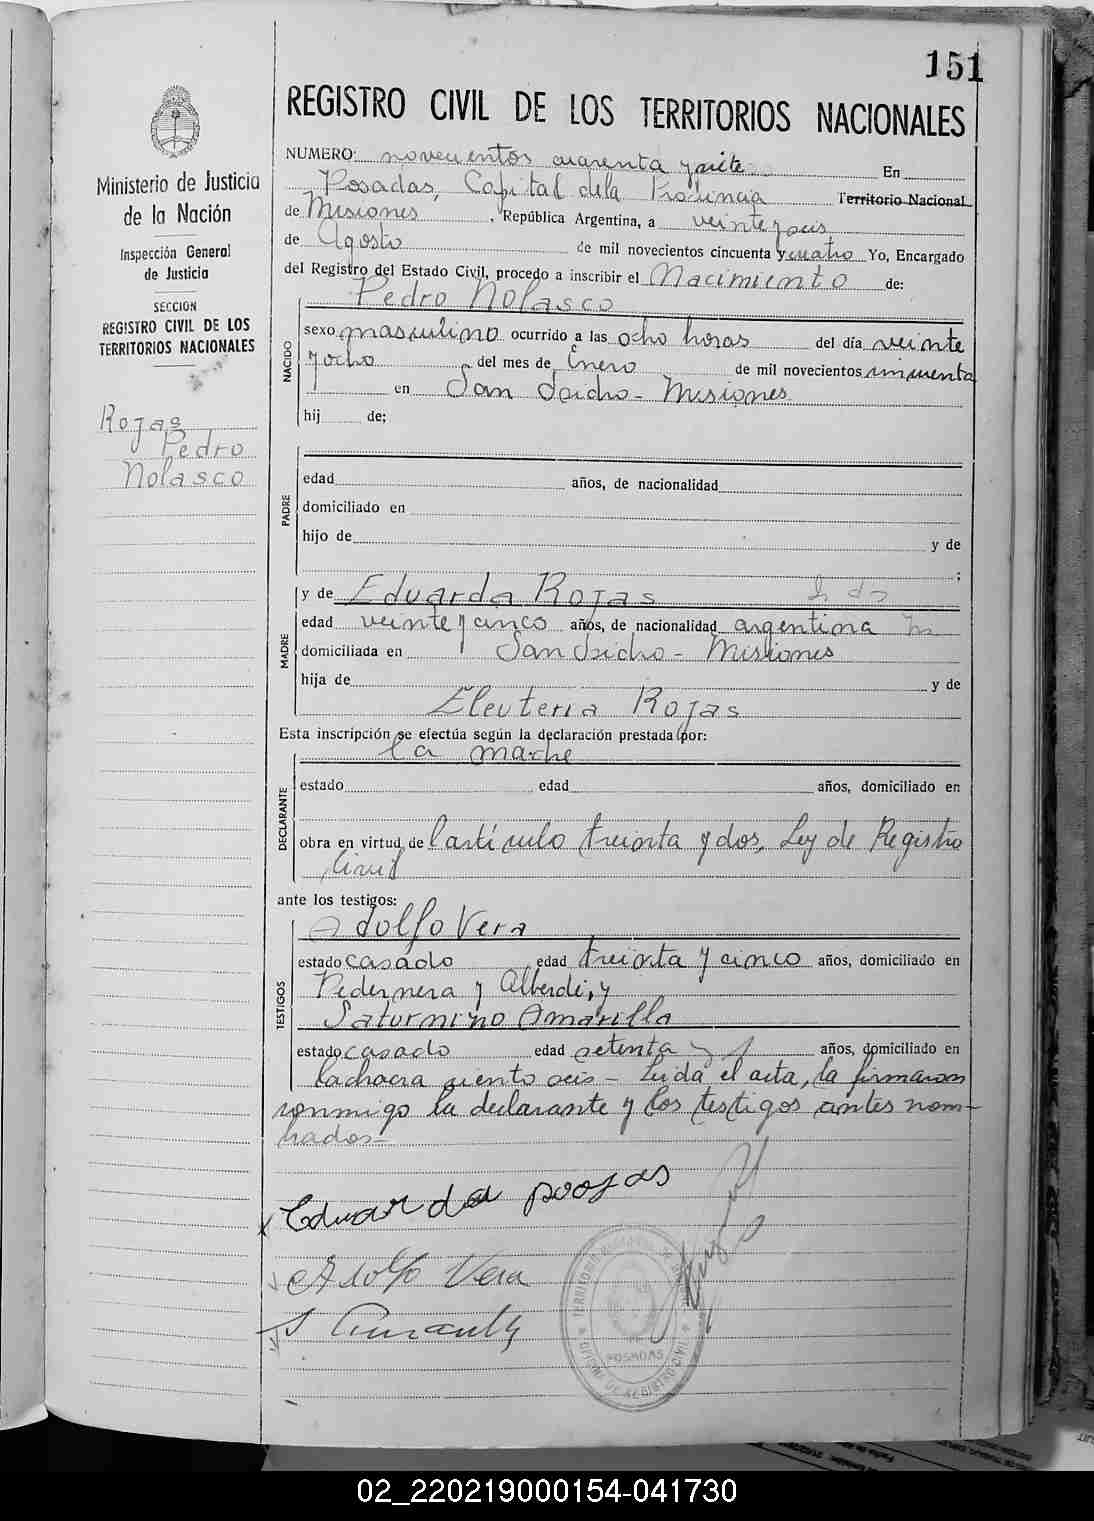 151
REGISTRO CIVIL DE LOS TERRITORIOS NACIONALES
Ministerio de Justicia
de la Nación
Inspección General
de Justicia
SECCION
REGISTRO CIVIL DE LOS
TERRITORIOS NACIONALES
Rojas
Pedro
Nolasco
NUMERO: novecientos cuarenta y siete En
Posadas, Capital de la Provincia Territorio Nacional
de Misiones, República Argentina, a veinte y seis
de Agosto de mil novecientos cincuenta y cuatro Yo, Encargado
del Registro del Estado Civil, procedo a inscribir el Nacimiento de:
Pedro Nolasco
NACIDO
sexo masculino ocurrido a las ocho horas del día veinte
y ocho del mes de Enero de mil novecientos cincuenta
en San Isidro - Misiones
hij de;
PADRE
edad años, de nacionalidad
domiciliado en
hijo de y de
;
y de Eduarda Rojas
MADRE
edad veinte y cinco años, de nacionalidad argentina
domiciliada en San Isidro - Misiones
hija de y de
Eleuteria Rojas
Esta inscripción se efectúa según la declaración prestada por:
la madre
DECLARANTE
estado edad años, domiciliado en
obra en virtud de l artículo treinta y dos, Ley de Registro
Civil
ante los testigos:
Adolfo Vera
TESTIGOS
estado casado edad treinta y cinco años, domiciliado en
Pedernera y Alberdi, y
Saturnino Amarilla
estado casado edad setenta años, domiciliado en
la chacra ciento seis - Leida el acta, la firmaron
conmigo la declarante y los testigos antes nom-
brados -
Eduarda roojas
Adolfo Vera
POSADAS
02_220219000154-041730